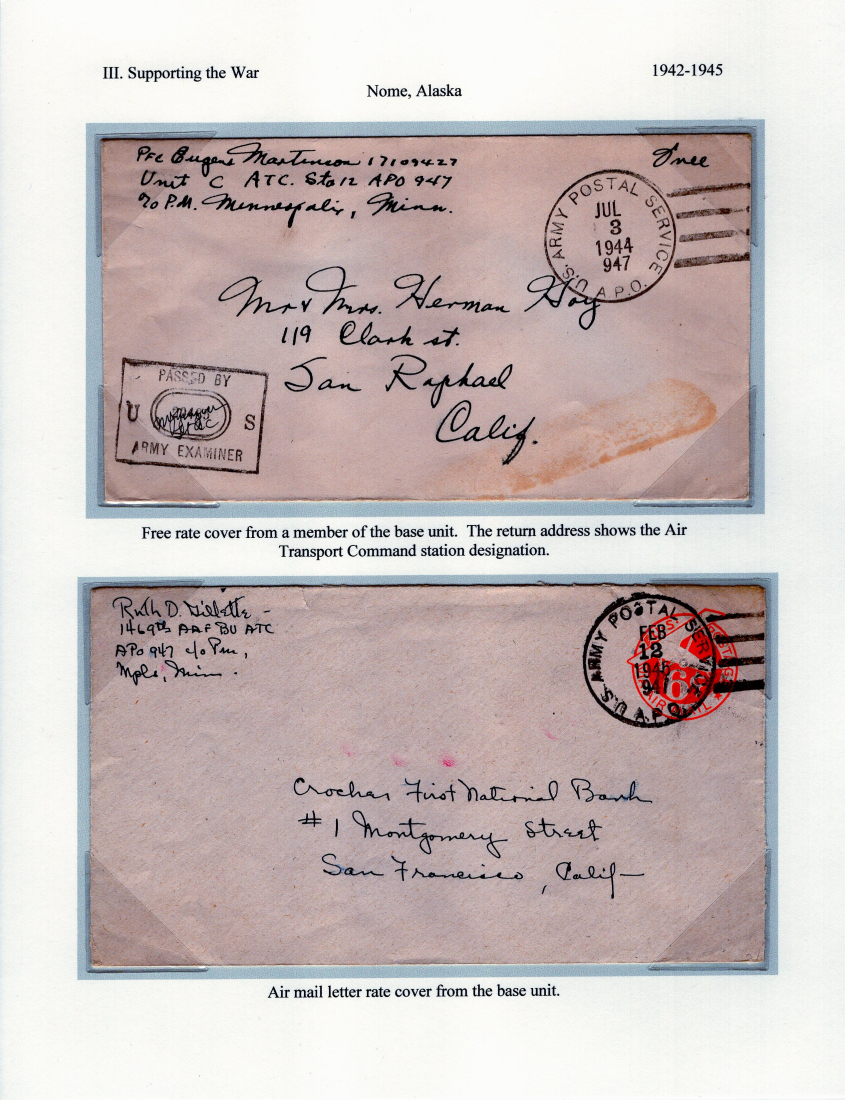 III. Supporting the War 1942-1945
Nome, Alaska
Pfc Eugene Martinson 17109427
Unit C ATC. Sta 12 APO 947
c/o P.M. Minneapolis, Minn.
Free
U.S. ARMY POSTAL SERVICE
JUL
3
1944
947
A.P.O.
Mr & Mrs. Herman Hoy
119 Clark st.
San Raphael
Calif.
PASSED BY
U S
ARMY EXAMINER
Free rate cover from a member of the base unit. The return address shows the Air
Transport Command station designation.
Ruth D. Gillette -
1469th AAF BU ATC
APO 947 c/o Pm,
Mpls, Minn.
U.S. ARMY POSTAL SERVICE
FEB
12
1945
947
A.P.O.
6¢
AIR MAIL
Crocker First National Bank
# 1 Montgomery Street
San Francisco, Calif-
Air mail letter rate cover from the base unit.